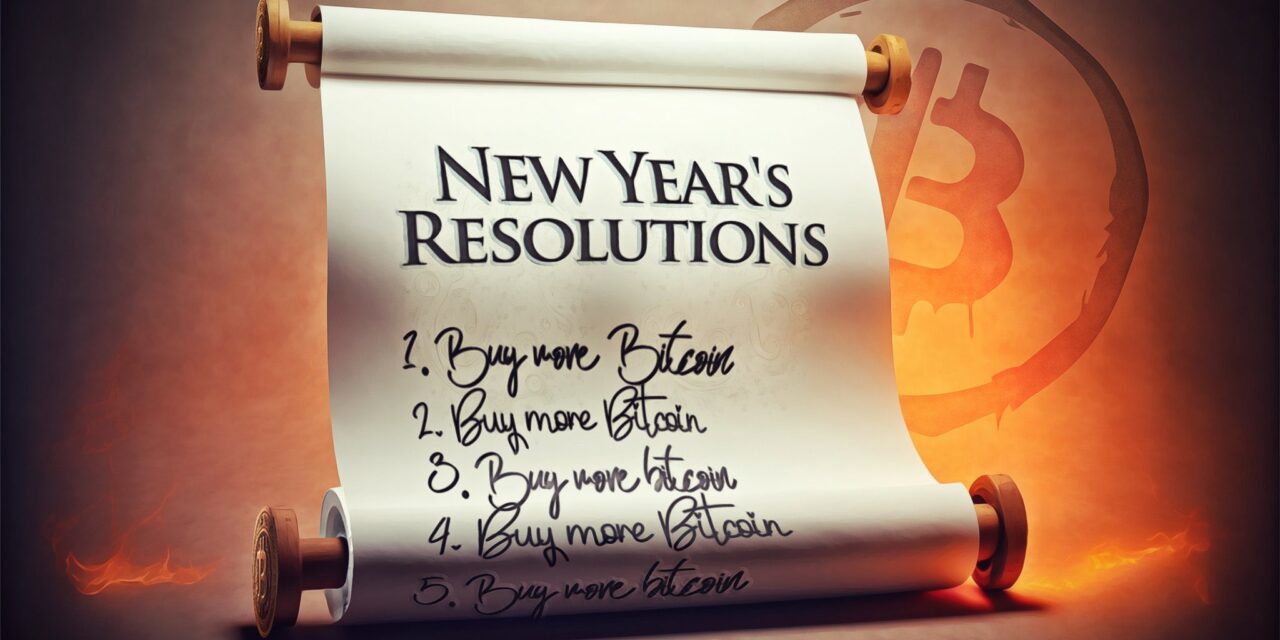 New Year's
Resolutions
1. Buy more Bitcoin
2. Buy more Bitcoin
3. Buy more bitcoin
4. Buy more Bitcoin
5. Buy more bitcoin